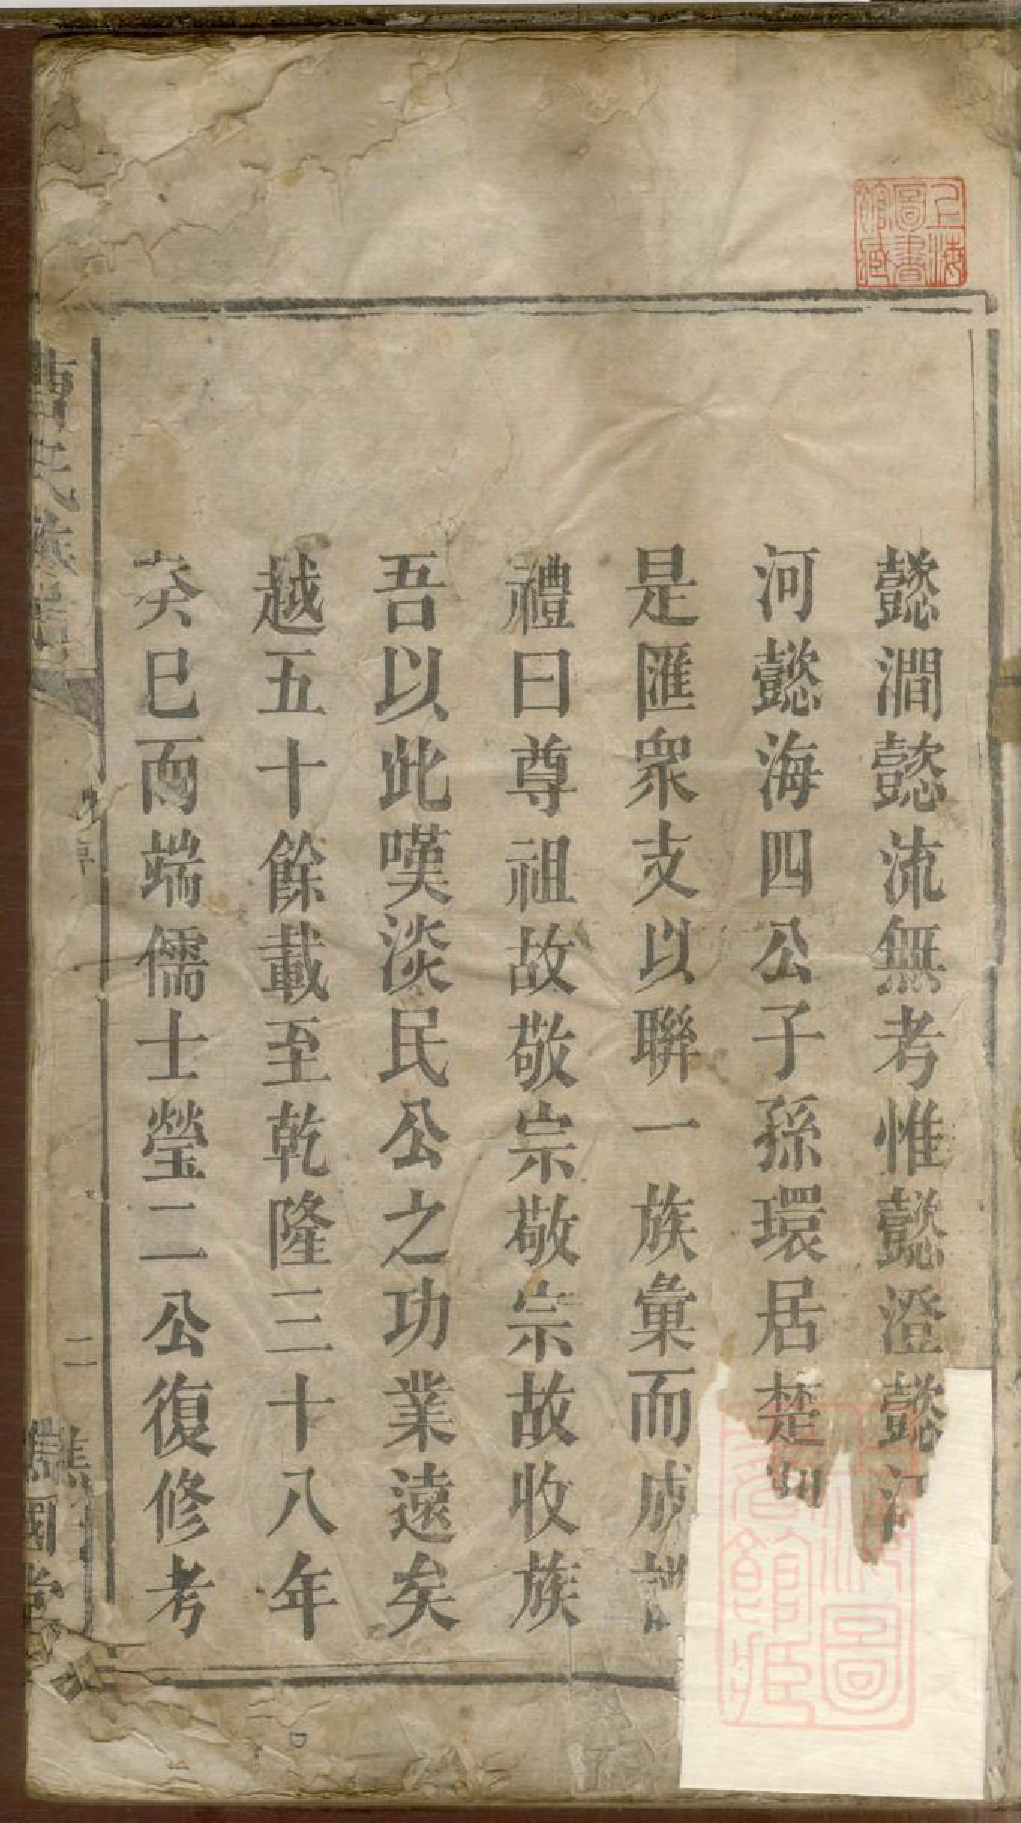 懿澗懿流無考惟懿澄懿
河懿海四公子孫環居楚
是匯衆支以聯一族彙而成
禮曰尊祖故敬宗敬宗故收族
吾以此嘆淡民公之功業遠矣
越五十餘載至乾隆三十八年
癸巳而端儒士瑩二公復修考
曹氏族譜
二
譙國堂
上海圖書館藏